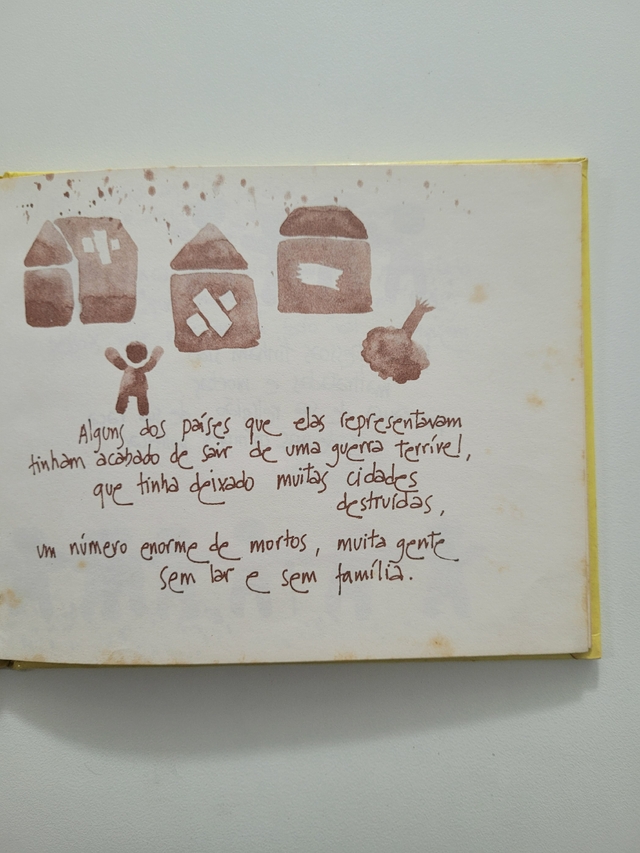 Alguns dos países que elas representavam
tinham acabado de sair de uma guerra terrível,
que tinha deixado muitas cidades
destruídas,
um número enorme de mortos, muita gente
sem lar e sem família.